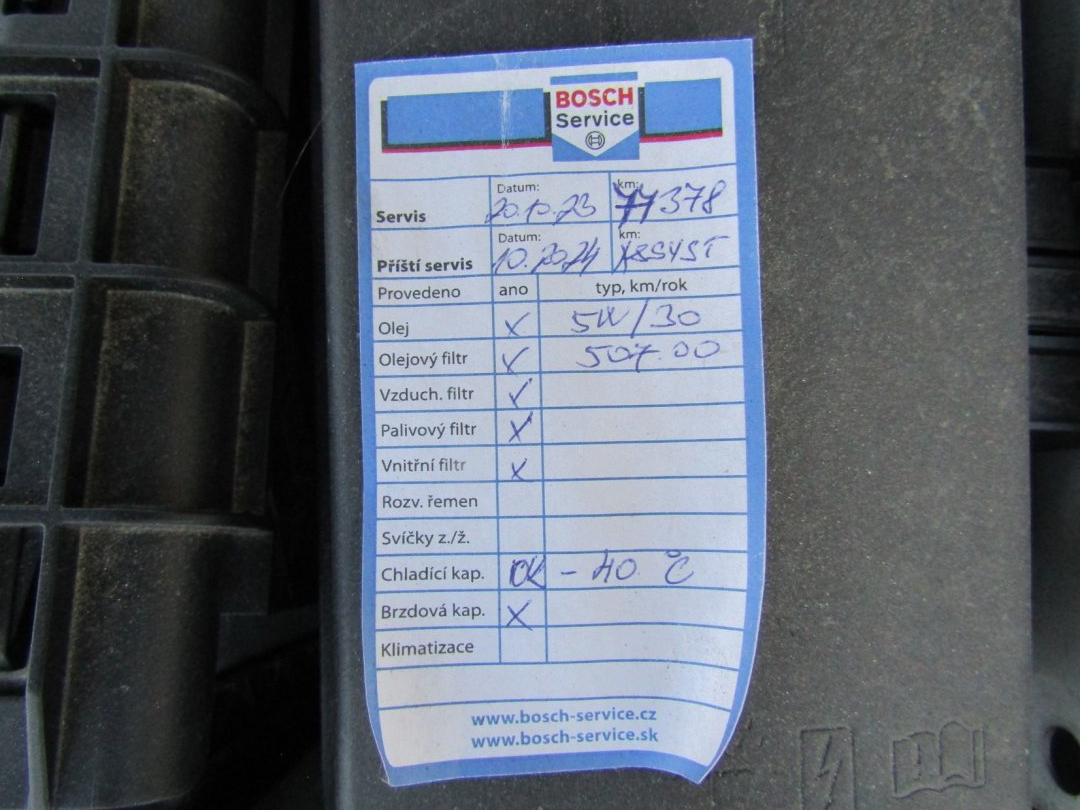 BOSCH
Service
Servis Datum: 20.10.23 km: 77378
Příští servis Datum: 10.2024 km: ASSYST
Provedeno ano typ, km/rok
Olej x 5W/30
Olejový filtr ✓ 507.00
Vzduch. filtr ✓
Palivový filtr x
Vnitřní filtr x
Rozv. řemen
Svíčky z./ž.
Chladící kap. OK - 40 °C
Brzdová kap. x
Klimatizace
www.bosch-service.cz
www.bosch-service.sk